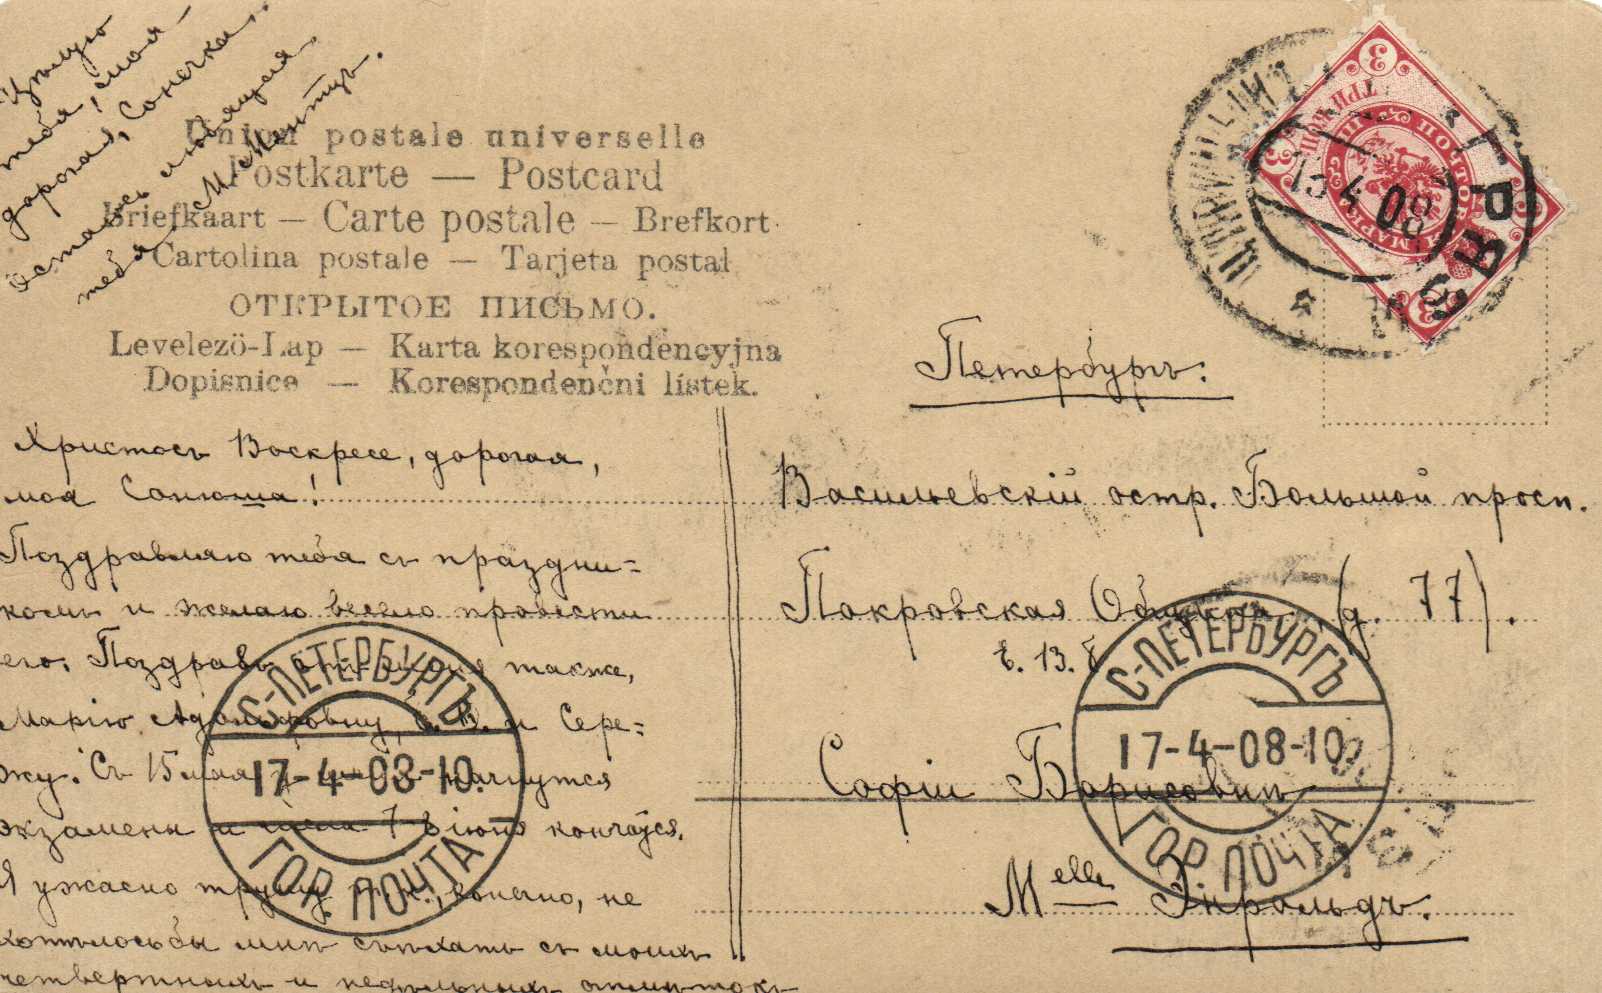 Цѣлую
тебя, моя
дорогая, Сонечка.
Остаюсь любящая
тебя М. Мантцъ.
Union postale universelle
Postkarte — Postcard
Briefkaart — Carte postale — Brefkort
Cartolina postale — Tarjeta postal
ОТКРЫТОЕ ПИСЬМО.
Levelezö-Lap — Karta korespondencyjna
Dopisnice — Korespondenčni lístek.
Христосъ Воскресе, дорогая,
моя Сонюша!
Поздравляю тебя съ праздни=
комъ и желаю весело провести
его. Поздравь отъ меня также,
Марію Адольфовну, и Сере=
жу. Съ 15 мая начнутся
экзамены и 7 іюня кончатся.
Я ужасно трушу, т. к., конечно, не
хотѣлось бы мнѣ съѣхать съ моихъ
четвертныхъ и недѣльныхъ отмѣтокъ
Петербургъ.
Васильевскій остр. Большой просп.
Покровская Община (д. 77).
Софіи Борисовнѣ
Melle Энрольдъ.
3
ТРИ КОП.
ПОЧТОВАЯ МАРКА
15 4 08
С-ПЕТЕРБУРГЪ
17-4-08-10.
ГОР. ПОЧТА
С-ПЕТЕРБУРГЪ
17-4-08-10
ГОР. ПОЧТА